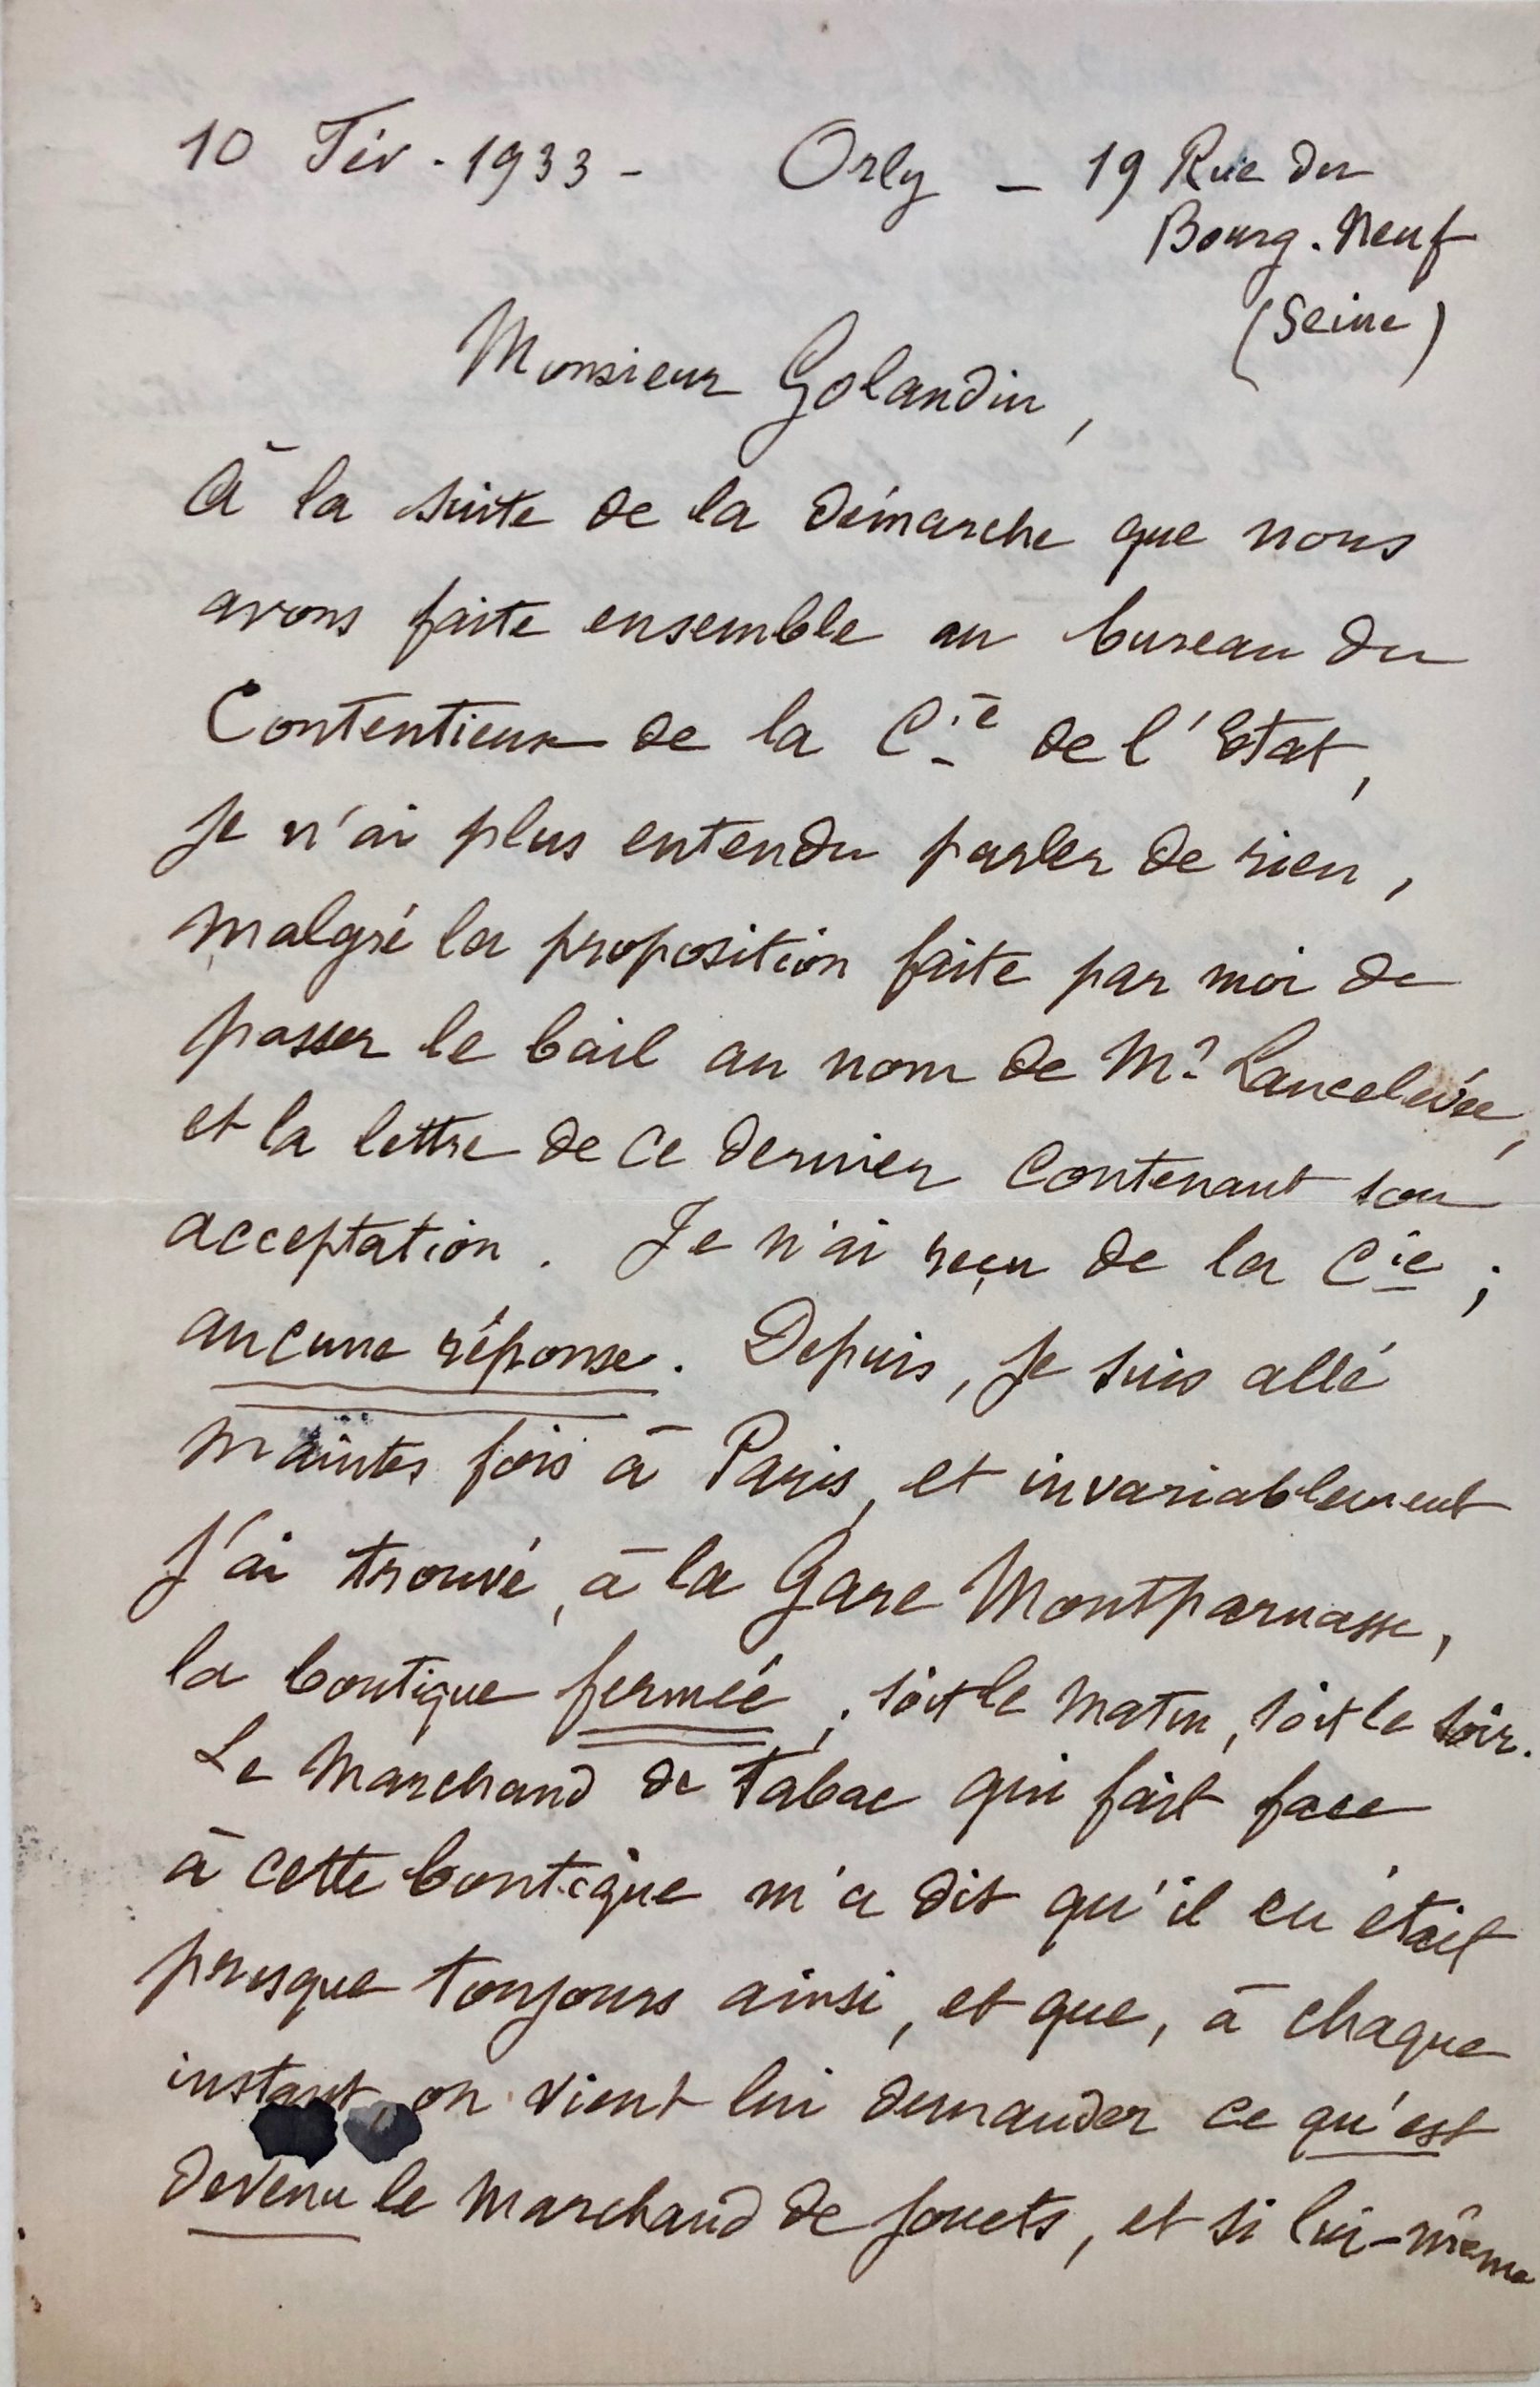 10 Fév. 1933 - Orly - 19 Rue du
Bourg. Neuf
(Seine)
Monsieur Golandin,
À la suite de la démarche que nous
avons faite ensemble au bureau du
Contentieux de la Cie de l'Etat,
je n'ai plus entendu parler de rien,
malgré la proposition faite par moi de
passer le bail au nom de Mr Lancelevée,
et la lettre de ce dernier contenant son
acceptation. Je n'ai reçu de la Cie ;
aucune réponse. Depuis, je suis allé
maintes fois à Paris, et invariablement
j'ai trouvé, à la Gare Montparnasse,
la boutique fermée ; soit le matin, soit le soir.
Le marchand de tabac qui fait face
à cette boutique m'a dit qu'il en était
presque toujours ainsi, et que, à chaque
instant, on vient lui demander ce qu'est
devenu le marchand de jouets, et si lui-même